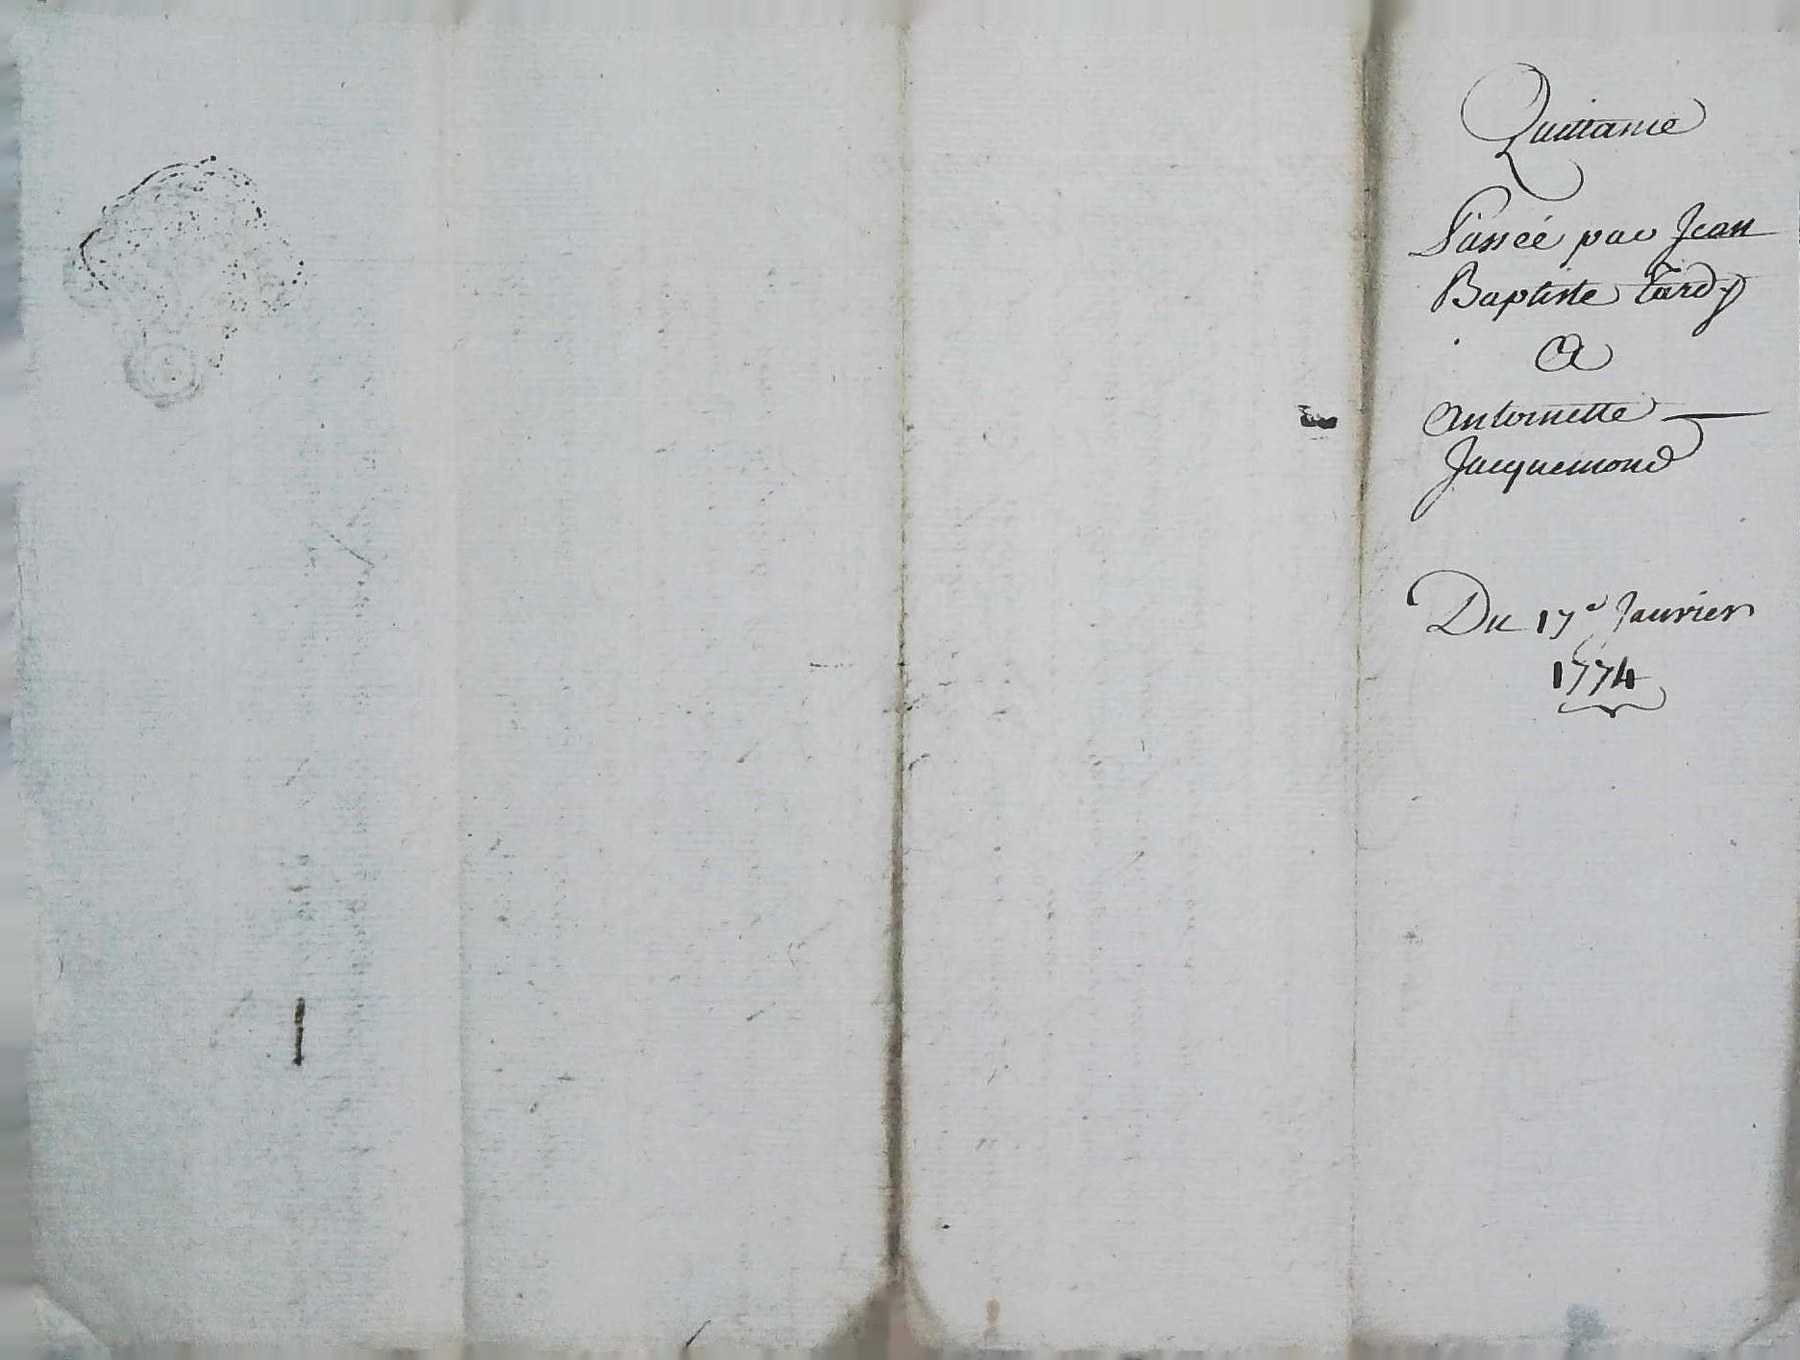 Quittance
Passée par Jean
Baptiste Tardy
A
Antoinette
Jacquemond
Du 17e Janvier
1774